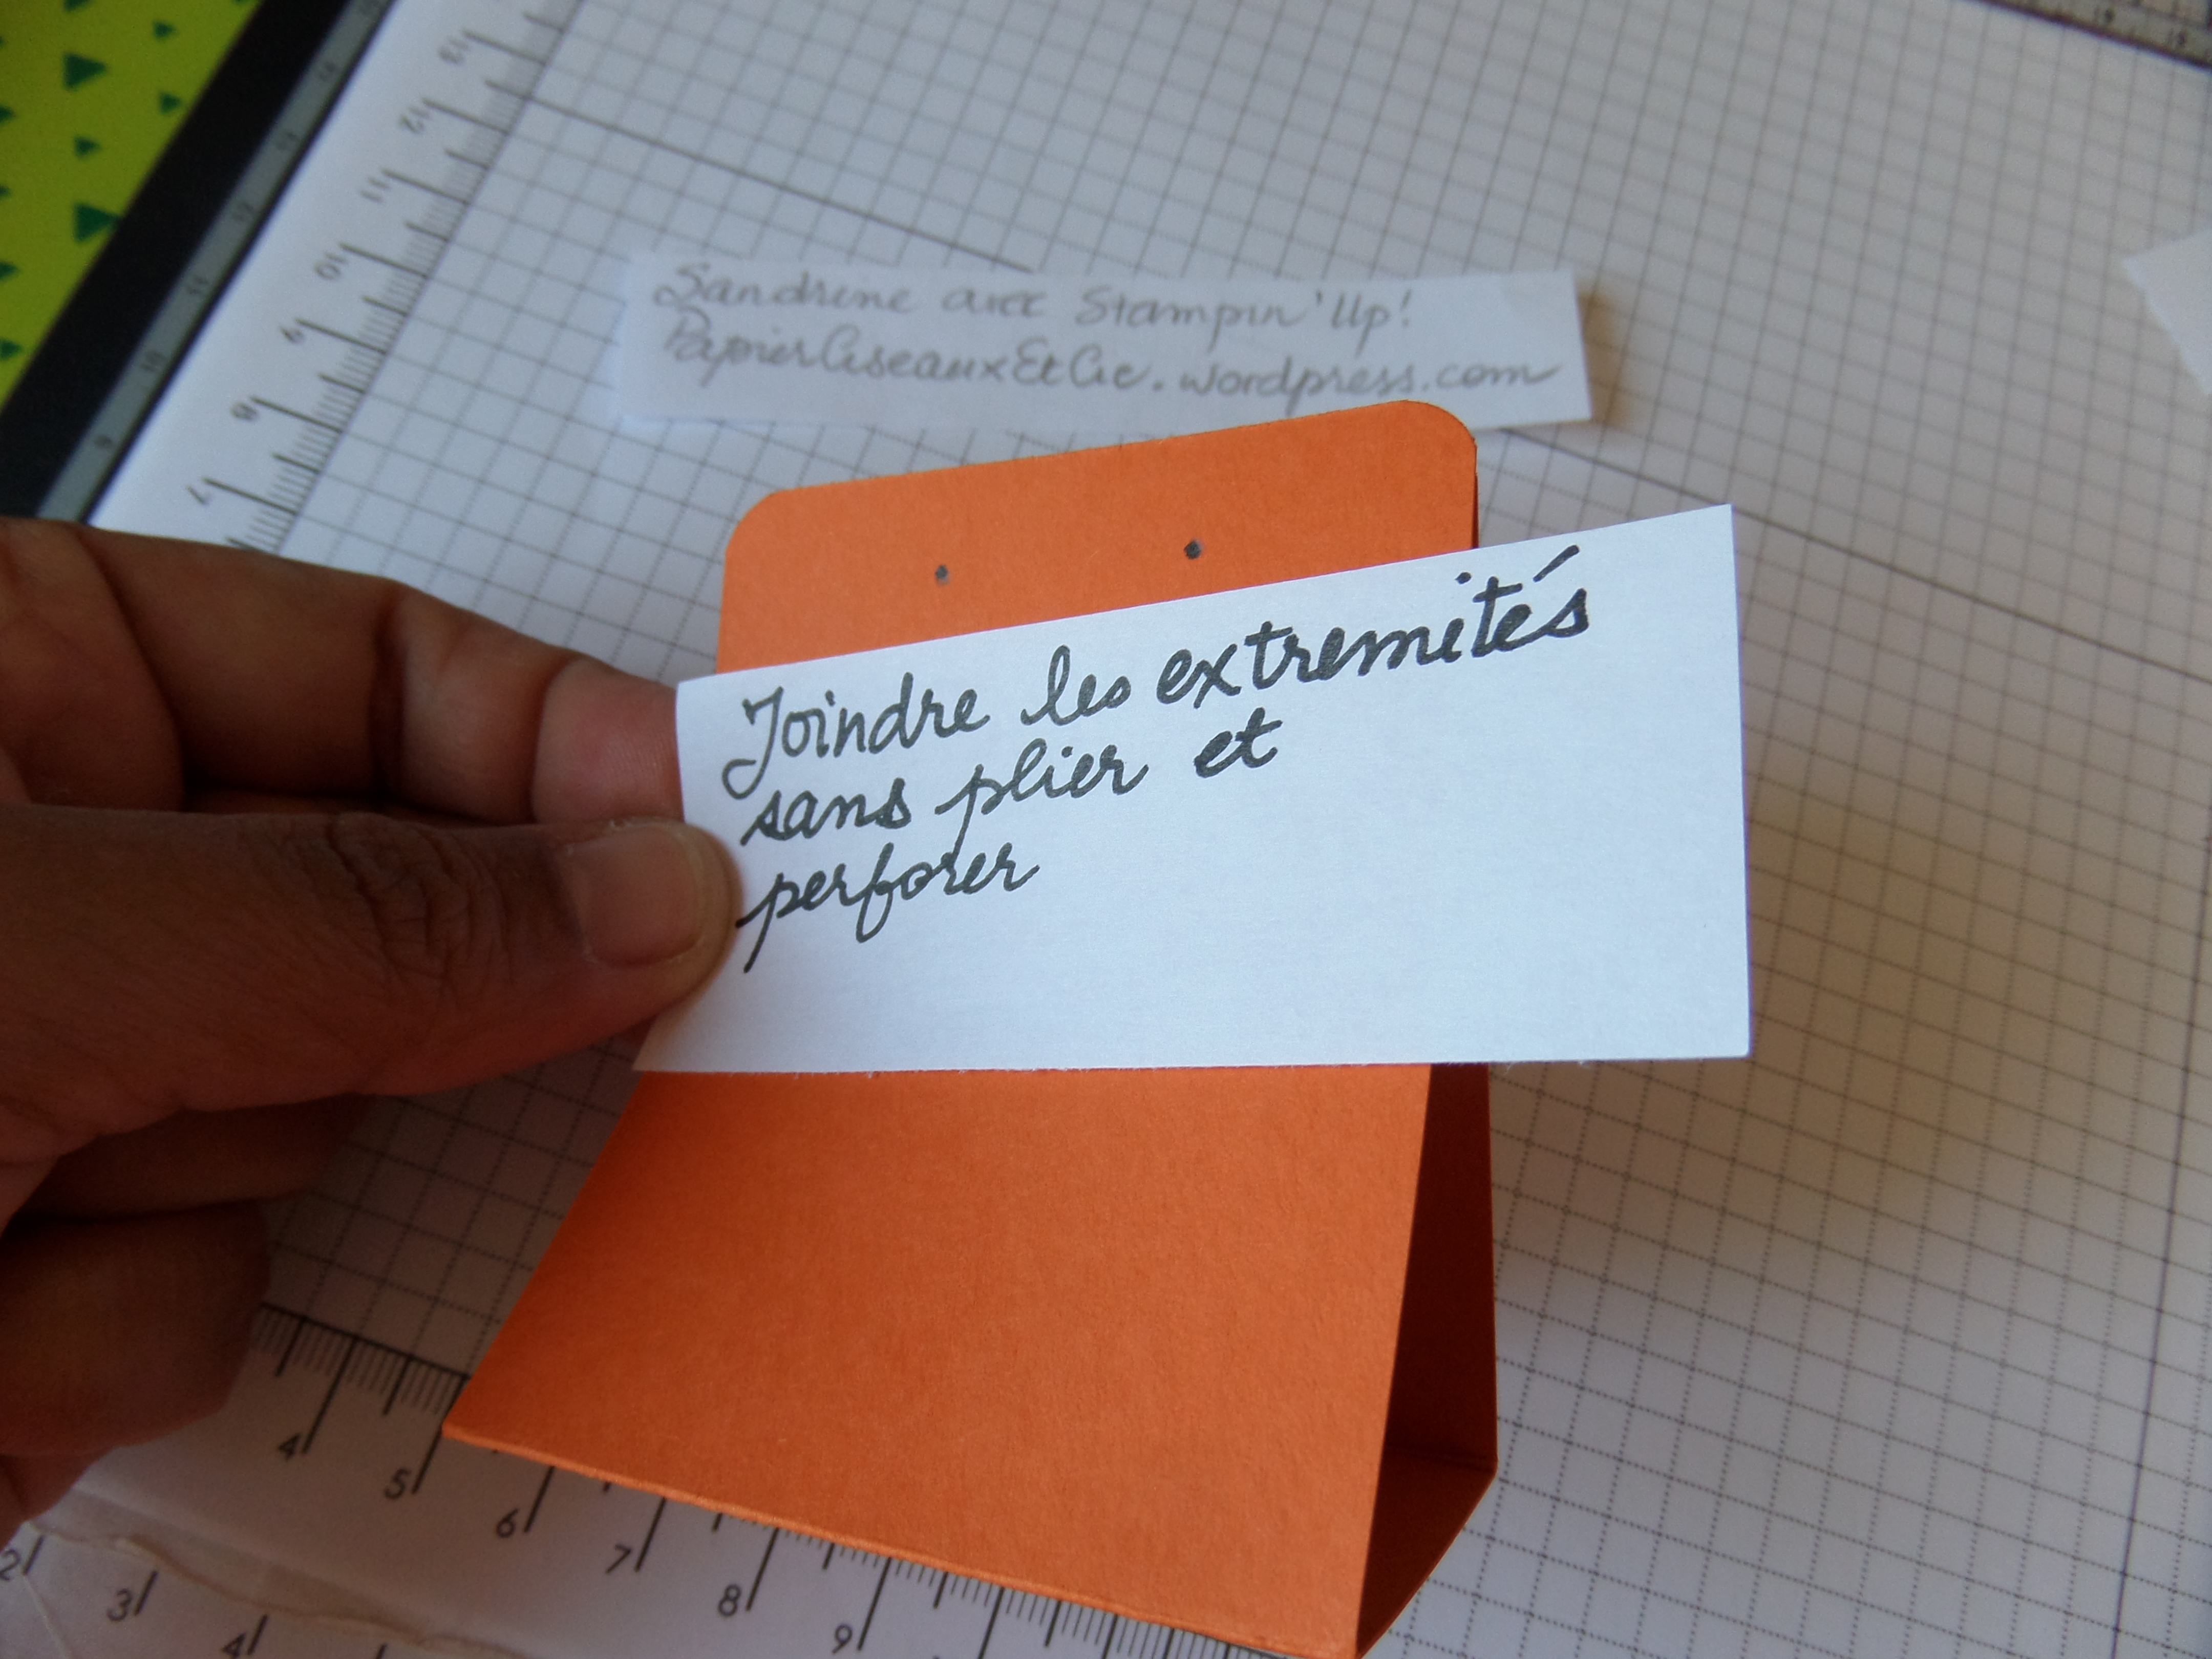 Sandrine avec Stampin'Up!
PapierCiseauxEtCie.wordpress.com
Joindre les extremités
sans plier et
perforer
13
12
11
10
9
8
7
4
5
6
7
8
9
2
3
4